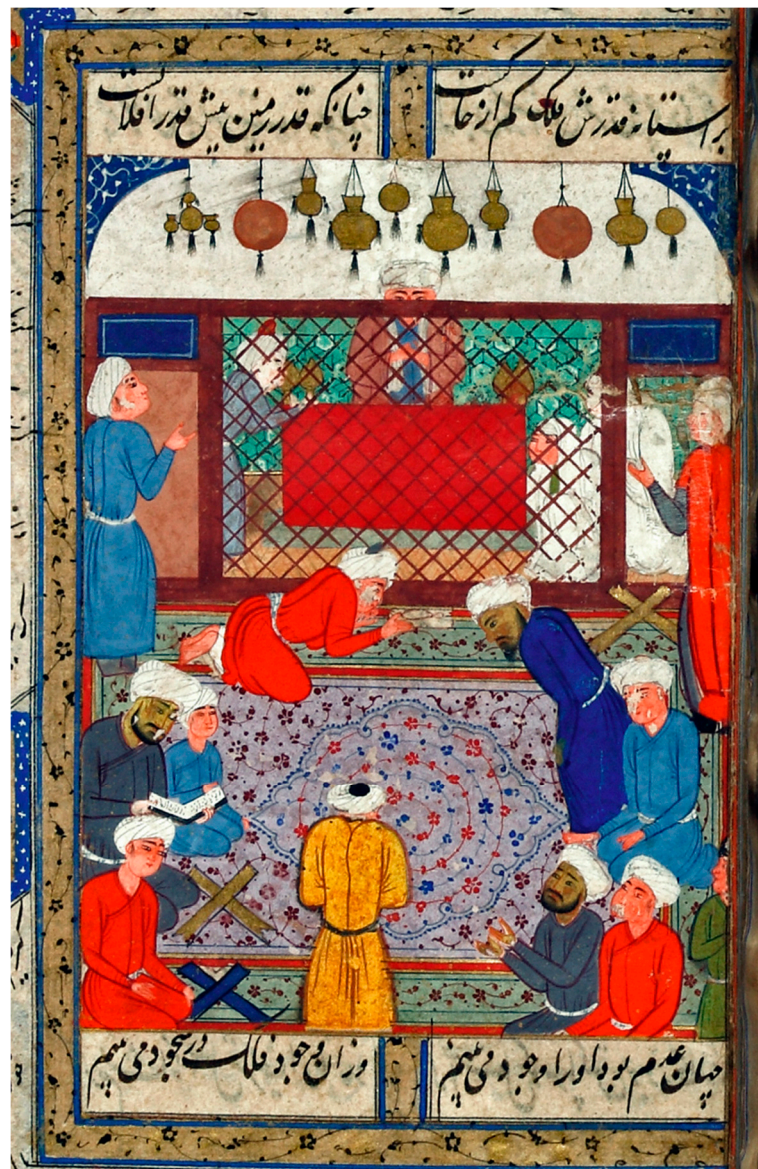 بر آستانه قدرش فلک کم از خاکست
چنانکه قدر زمین بیش قدر افلاکست
جهان عدم بود او را وجود می بینم
وزان وجود فلک در سجود می بینم